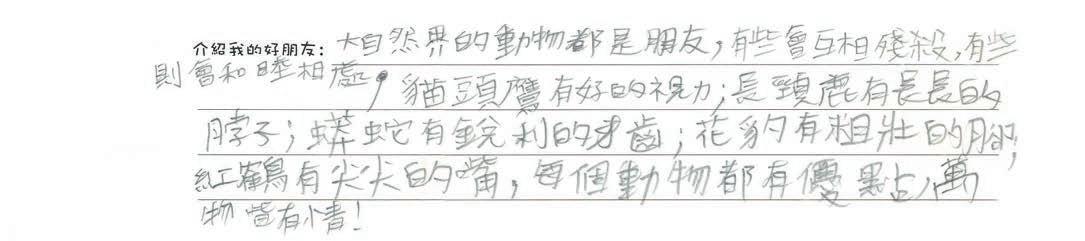 介紹我的好朋友：大自然界的動物都是朋友，有些會互相殘殺，有些
則會和睦相處，貓頭鷹有好的視力；長頸鹿有長長的
脖子；蟒蛇有銳利的牙齒；花豹有粗壯的腳；
紅鶴有尖尖的嘴，每個動物都有優點，萬
物皆有情！